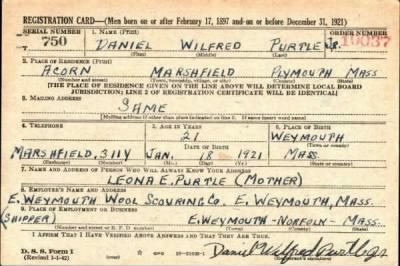 REGISTRATION CARD—(Men born on or after February 17, 1897 and on or before December 31, 1921)
SERIAL NUMBER 1. NAME (Print) ORDER NUMBER
750 DANIEL WILFRED PURTLE JR. 10037
(First) (Middle) (Last)
2. PLACE OF RESIDENCE (Print)
ACORN MARSHFIELD PLYMOUTH MASS
(Number and street) (Town, township, village, or city) (County) (State)
[THE PLACE OF RESIDENCE GIVEN ON THE LINE ABOVE WILL DETERMINE LOCAL BOARD
JURISDICTION; LINE 2 OF REGISTRATION CERTIFICATE WILL BE IDENTICAL]
3. MAILING ADDRESS
SAME
[Mailing address if other than place indicated on line 2. If same insert word same]
4. TELEPHONE 5. AGE IN YEARS 6. PLACE OF BIRTH
21 WEYMOUTH
DATE OF BIRTH (Town or county)
MARSHFIELD, 3114 JAN. 18 1921 MASS.
(Exchange) (Number) (Mo.) (Day) (Yr.) (State or country)
7. NAME AND ADDRESS OF PERSON WHO WILL ALWAYS KNOW YOUR ADDRESS
LEONA E. PURTLE (MOTHER)
8. EMPLOYER'S NAME AND ADDRESS
E. WEYMOUTH WOOL SCOURING CO. E. WEYMOUTH, MASS.
9. PLACE OF EMPLOYMENT OR BUSINESS
(SHIPPER) E. WEYMOUTH - NORFOLK - MASS.
(Number and street or R. F. D. number) (Town) (County) (State)
I AFFIRM THAT I HAVE VERIFIED ABOVE ANSWERS AND THAT THEY ARE TRUE.
D. S. S. Form 1
(Revised 1-1-42) (over) GPO
Daniel Wilfred Purtle Jr